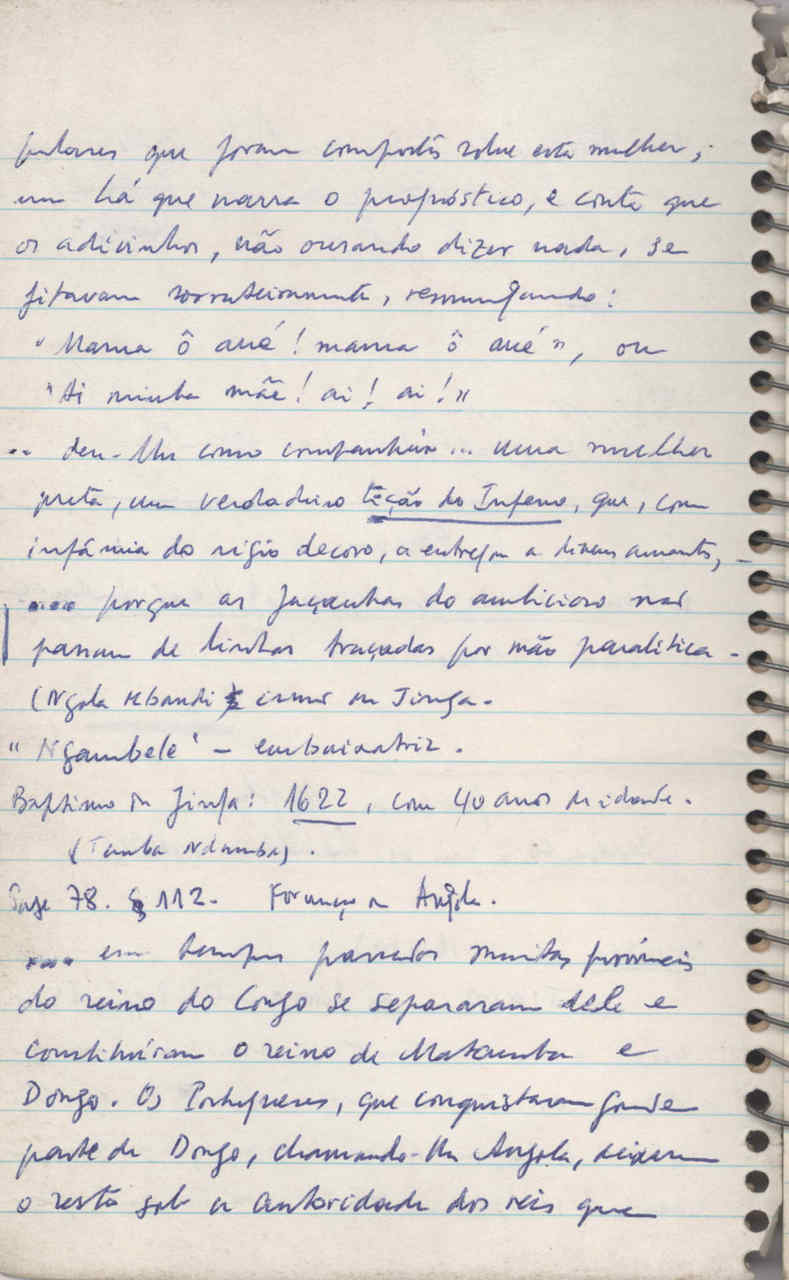 pulares que foram compostas sobre esta mulher,
um há que narra o prognóstico, e conta que
os adivinhos, não ousando dizer nada, se
fitavam sorrateiramente, resmungando:
"Mama ô aué! mama ô aué", ou
"Ai minha mãe! ai! ai!"
.. deu-lhe como companheira ... uma mulher
preta, um verdadeiro tição do Inferno, que, com
infâmia do régio decoro, a entregou a diversos amantes,
.... porque as façanhas do ambicioso não
passam de linhas traçadas por mão paralítica -
(Ngola Mbandi irmão da Jinga.
"Ngambele" - embaixatriz.
Baptismo da Jinga: 1622, com 40 anos de idade.
(Tamba Ndamba).
Page 78. § 112. Formação de Angola.
.... em tempos passados muitas províncias
do reino do Congo se separaram dele e
constituíram o reino de Matamba e
Dongo. Os Portugueses, que conquistaram grande
parte de Dongo, chamando-lhe Angola, deixaram
o resto sob a autoridade dos reis que